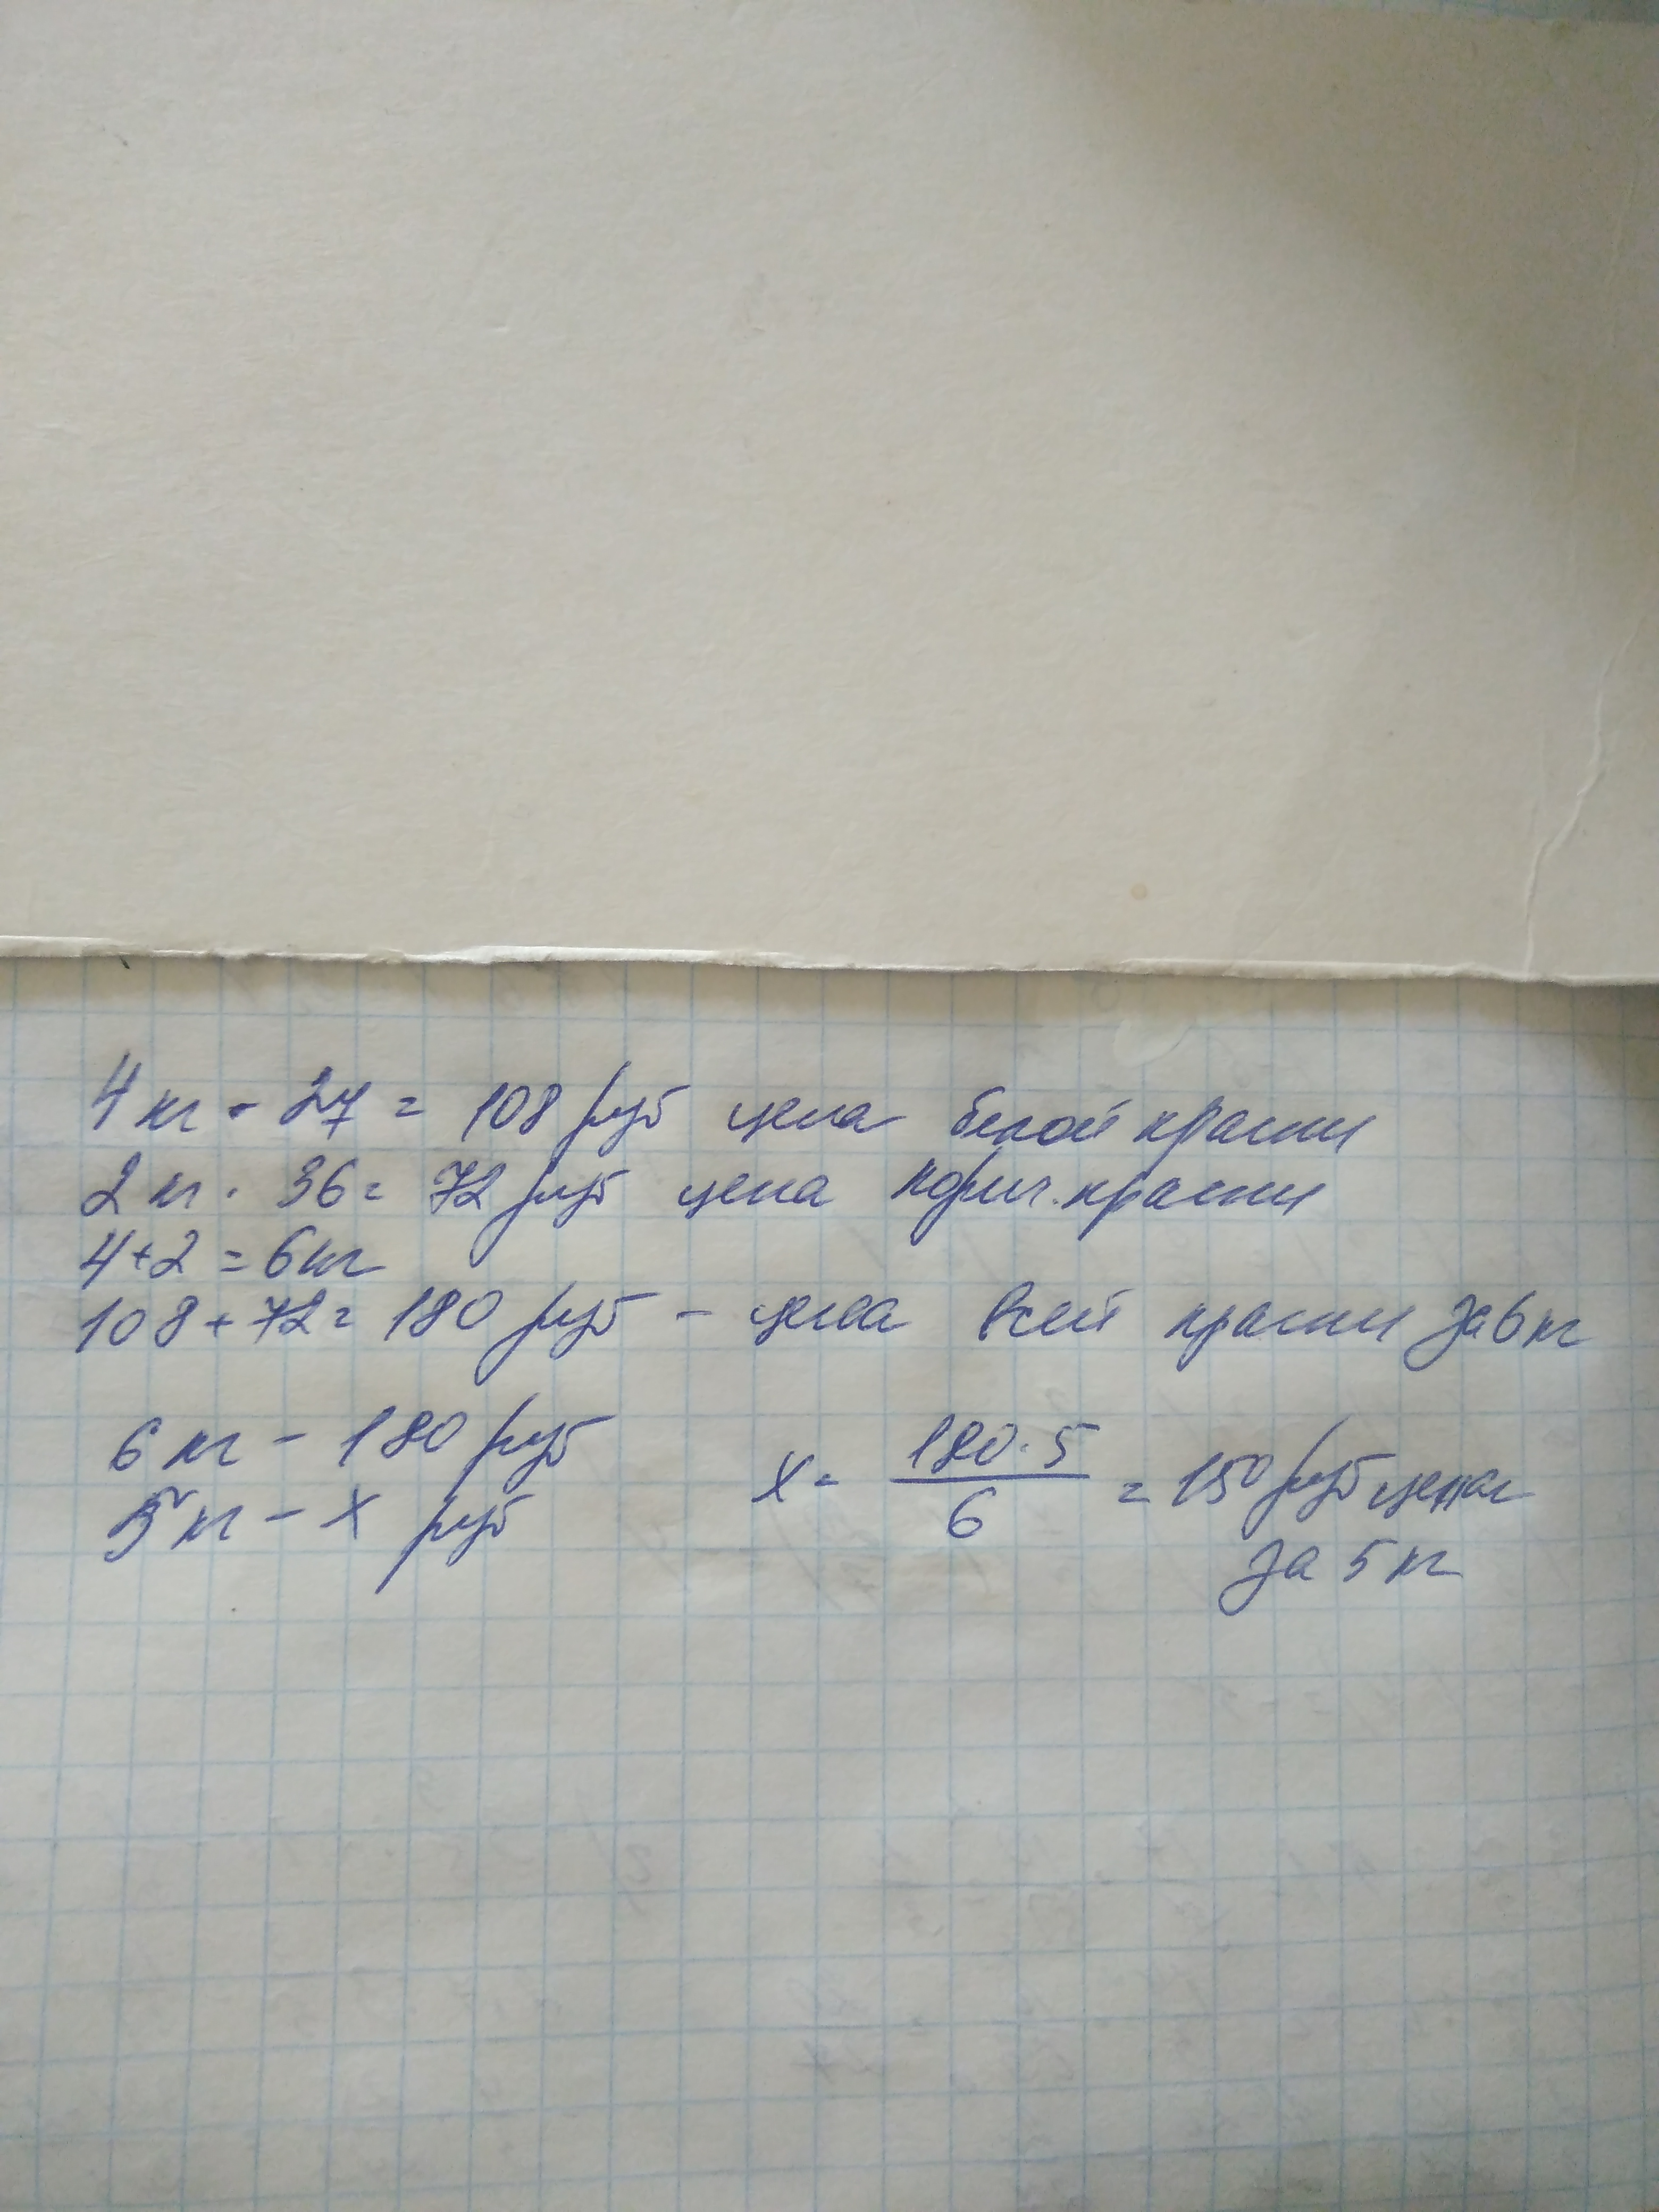 4 кг · 27 = 108 руб цена белой краски
2 кг · 36 = 72 руб цена корич. краски
4+2 = 6 кг
108 + 72 = 180 руб - цена всей краски за 6 кг
6 кг - 180 руб
5 кг - x руб
x = 180 · 5 / 6 = 150 руб цена
за 5 кг